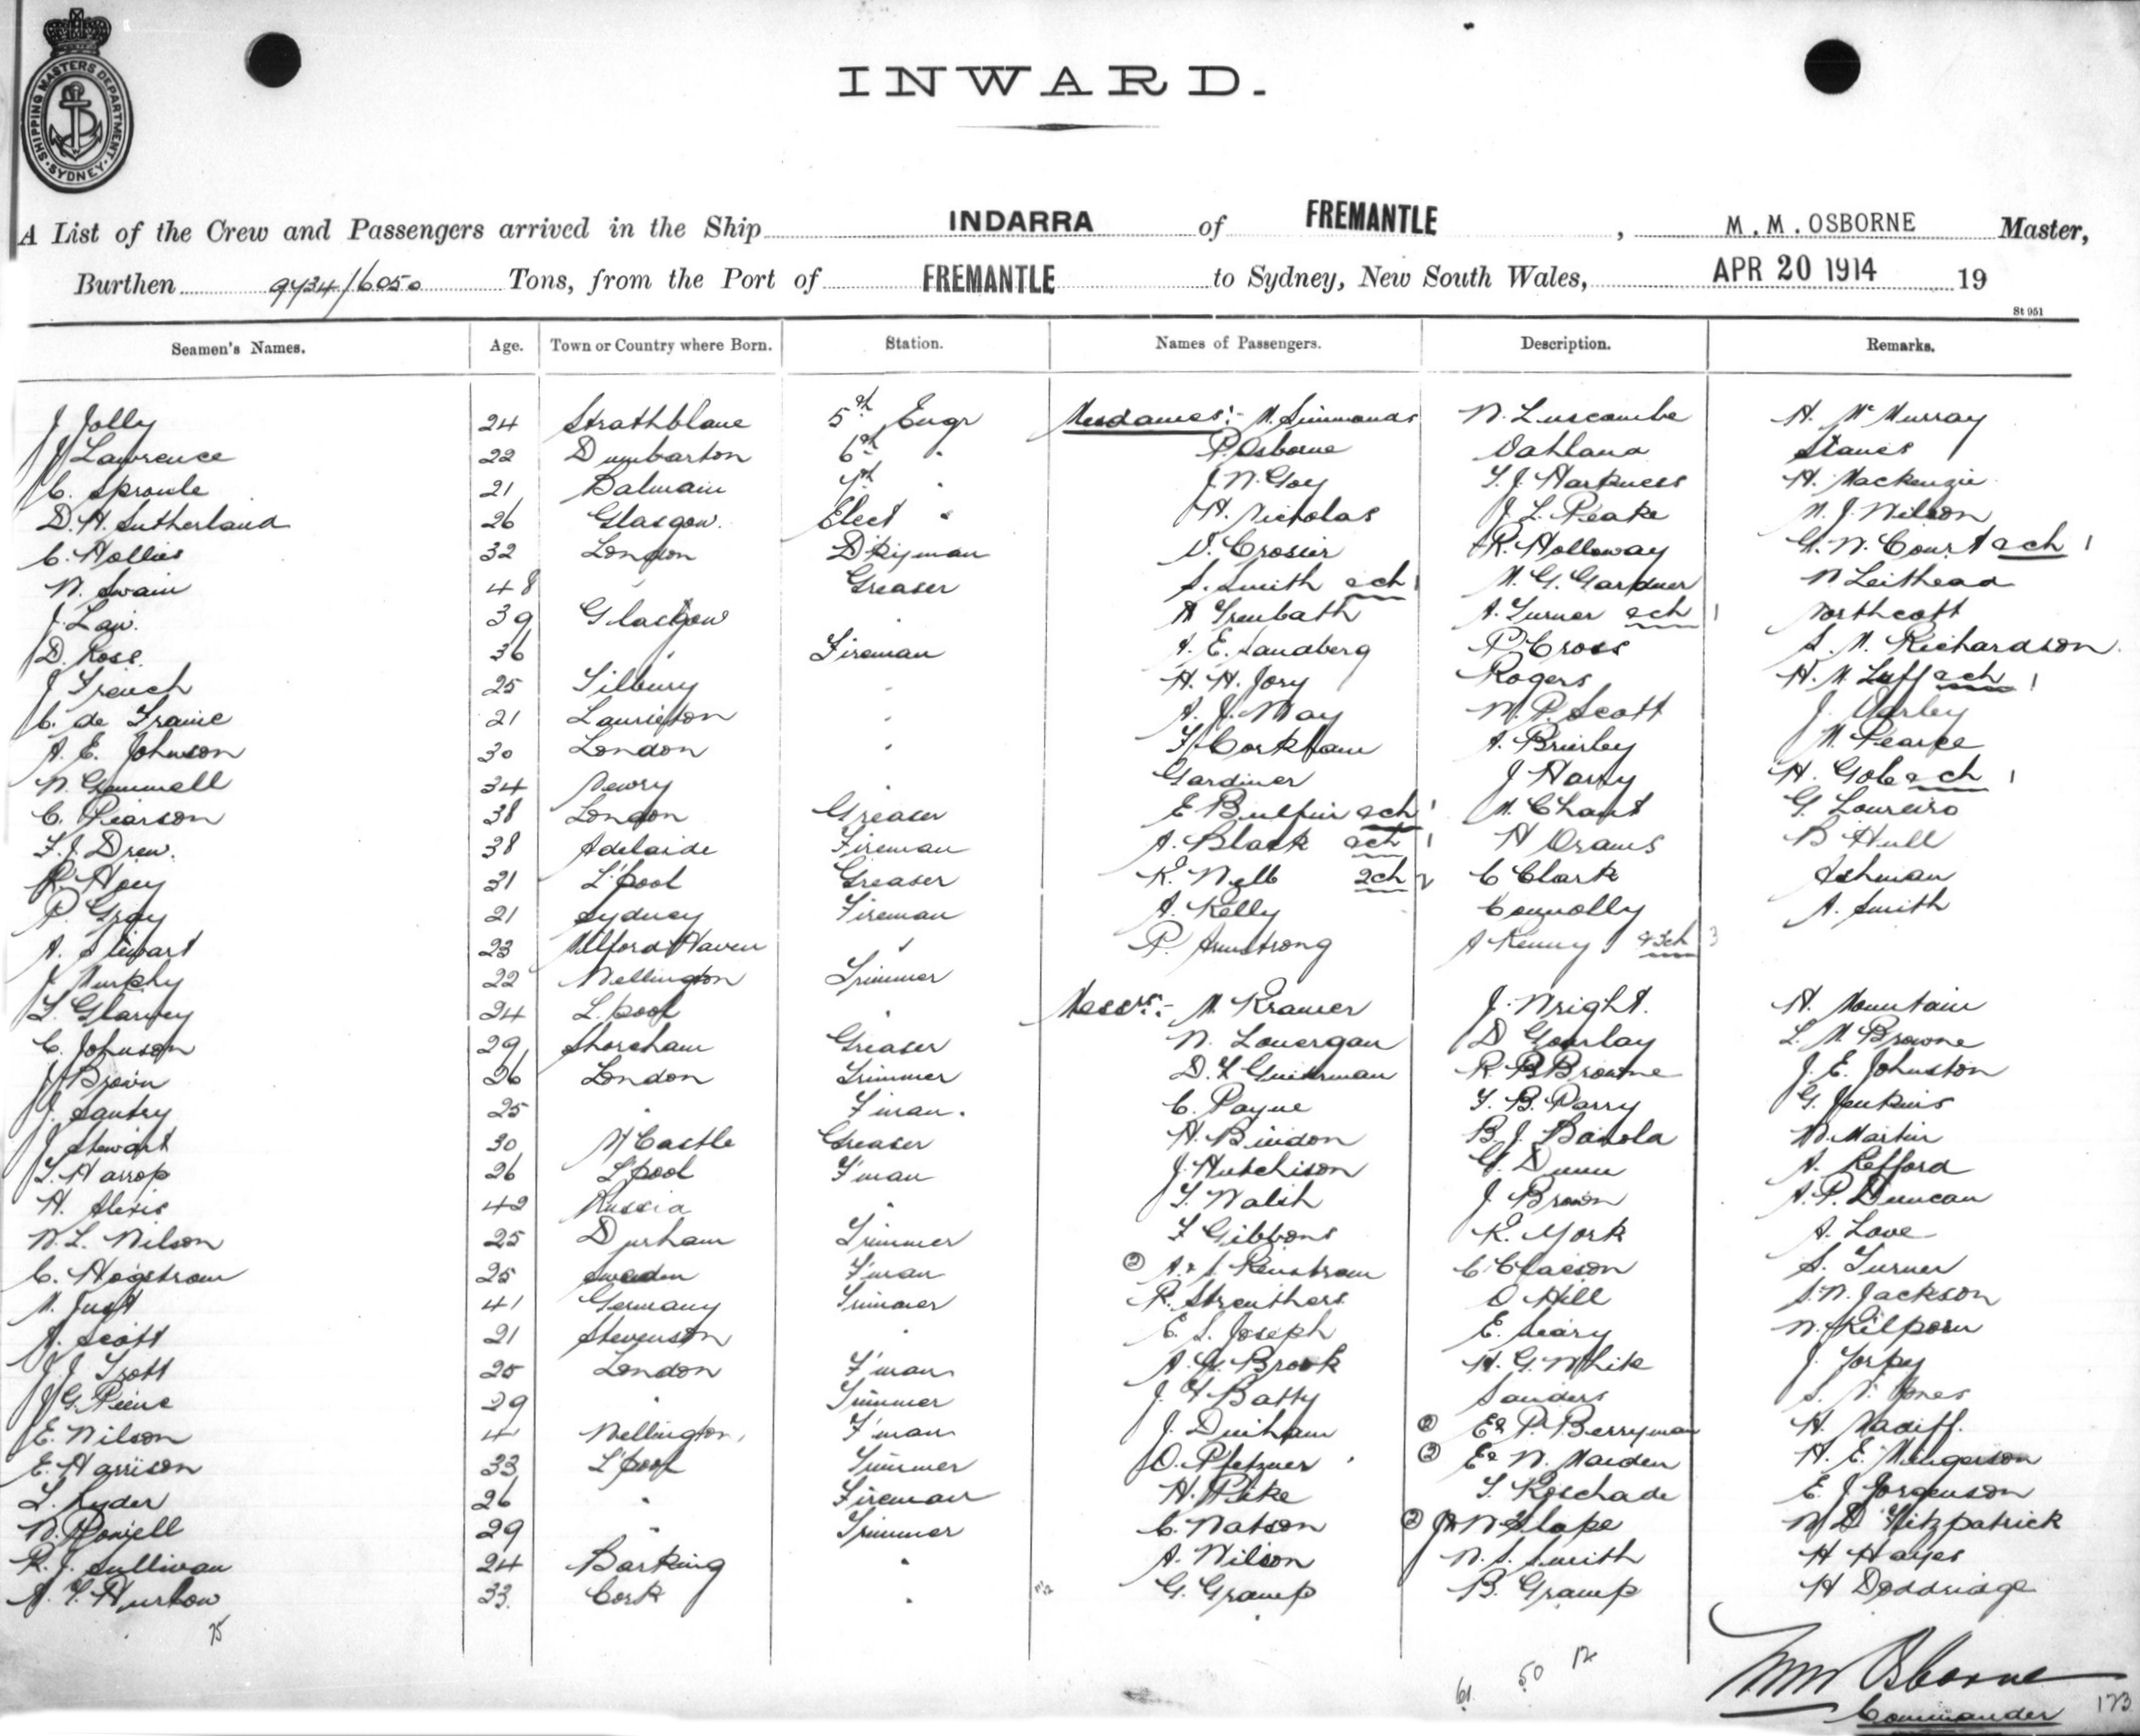 SHIPPING MASTERS DEPARTMENT
SYDNEY
INWARD.
A List of the Crew and Passengers arrived in the Ship INDARRA of FREMANTLE, M.M. OSBORNE Master,
Burthen 9734/6050 Tons, from the Port of FREMANTLE to Sydney, New South Wales, APR 20 1914 19
St 951
Seamen's Names. Age. Town or Country where Born. Station. Names of Passengers. Description. Remarks.
J Jolly 24 Strathblane 5th Engr Mesdames:- M. Simmonds N. Luscombe H. McMurray
J Lawrence 22 Dumbarton 6th " P. Osborne Dahland Stanes
C. Sproule 21 Balmain 7th " J. W. Goy T. J. Harkness H. Mackenzie
D. H. Sutherland 26 Glasgow. Elect " H. Nicholas J. L. Peake W. J. Wilson
C. Hollis 32 London D'kyman V. Crosier R. Holloway G. W. Court & ch 1
W. Swain 48 " Greaser S. Smith & ch 1 M. G. Gardner W Leithead
J. Law. 39 Glasgow " A Trenbath A. Turner & ch 1 Northcott
D. Ross. 36 " Fireman A. E. Sandberg P Cross S. M. Richardson
J French 25 Tilbury " H. H. Jory Rogers H. M. Luff & ch 1
C. de Traine 21 Laurieton " A. J. May W. P. Scott J. Varley
A. E. Johnson 30 London " F. Corkham A. Brierley M. Pearce
W. Gammell 34 Newry " Gardiner J Harry H. Gob & ch 1
C. Pearson 38 London Greaser E Bulpin & ch 1 M. Chant G. Loureiro
F. J. Drew. 38 Adelaide Fireman A. Black & ch 1 H Orams B Hull
R. Hoey 31 L'pool Greaser K. Nell 2 ch 2 C Clark Ashman
P. Gray 21 Sydney Fireman A. Kelly Connolly A. Smith
A. Stewart 23 Milford Haven " P. Armstrong A Kenny & 3 ch 3
J Murphy 22 Wellington Trimmer
T. Glarvey 24 L.pool " Messrs:- M. Kramer J. Wright. H. Mountain
C. Johnson 29 Shoreham Greaser W. Lonergan D Gourlay L. M. Browne
J Brown 26 London Trimmer D. F. R. B Browne J. E. Johnston
J. Santry 25 " F'man. C. Payne F. B. Parry G. Jenkins
J Stewart 30 N'Castle Greaser H. Bindon B. J. W. Martin
T. Harrop 26 L'pool F'man J. Hutchison G. Dunn A. Refford
H. Alexis 42 Russia " T. Walsh J. Brown A. P. Duncan
W. L. Wilson 25 Durham Trimmer F Gibbons R. York A. Love
C. Hogstrom 25 Sweden F'man ② A. & J. Renstrom C Clacson S. Turner
M. Just 41 Germany Trimmer R. Struthers O Hill S. W. Jackson
A. Scott 21 Stevenston " E. S. Joseph E. Leary W. Kilporn
J. J. Trott 25 London F'man A. G. Brook H. G. White J. Torpy
J G. Peene 29 " Trimmer J. F. Batty Sanders S. V. Jones
E. Wilson 41 Wellington, F'man J. Durham ② E & P. Berryman H. Nadiff.
E. Harrison 33 L'pool Trimmer O. Pfetzner ② E & W. Maiden H. E. Mengerson
L. Ryder 26 " Fireman H. Pike T. Koschade E. J. Jorgenson
W. Powell 29 " Trimmer C. Watson ② J & W Slape W D Fitzpatrick
R. J. Sullivan 24 Barking " A. Wilson W. S. Smith H Hayes
A. T. Hurlow 33. Cork " G. Gramp B. Gramp H Doddridge
75
61 50 12
MM Osborne
Commander 173